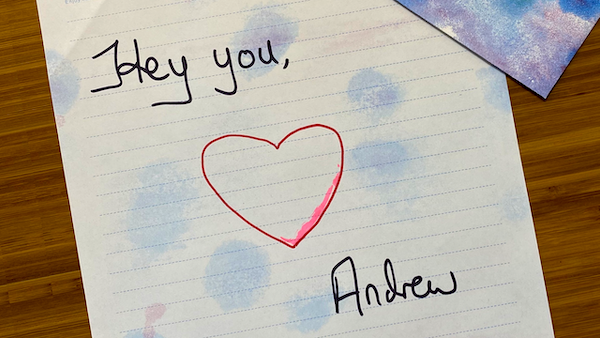 Hey you,
Andrew